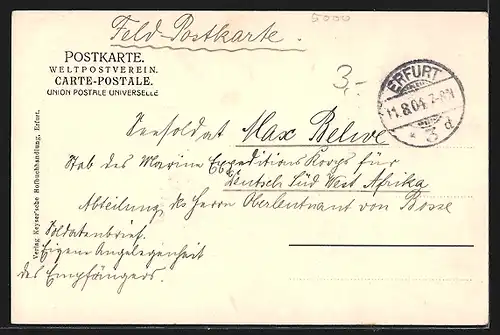 5000
Feld-Postkarte.
POSTKARTE.
WELTPOSTVEREIN.
CARTE-POSTALE.
UNION POSTALE UNIVERSELLE
3,-
ERFURT
11.8.04.
* 3 d
Seesoldat Max Belwe
Stab des Marine Expeditions Korps für
Deutsch Süd West Afrika
Abteilung des Herrn Oberleutnant von Bosse
Soldatenbrief.
Eigene Angelegenheit
des Empfängers.
Verlag Keyser'sche Hofbuchhandlung, Erfurt.